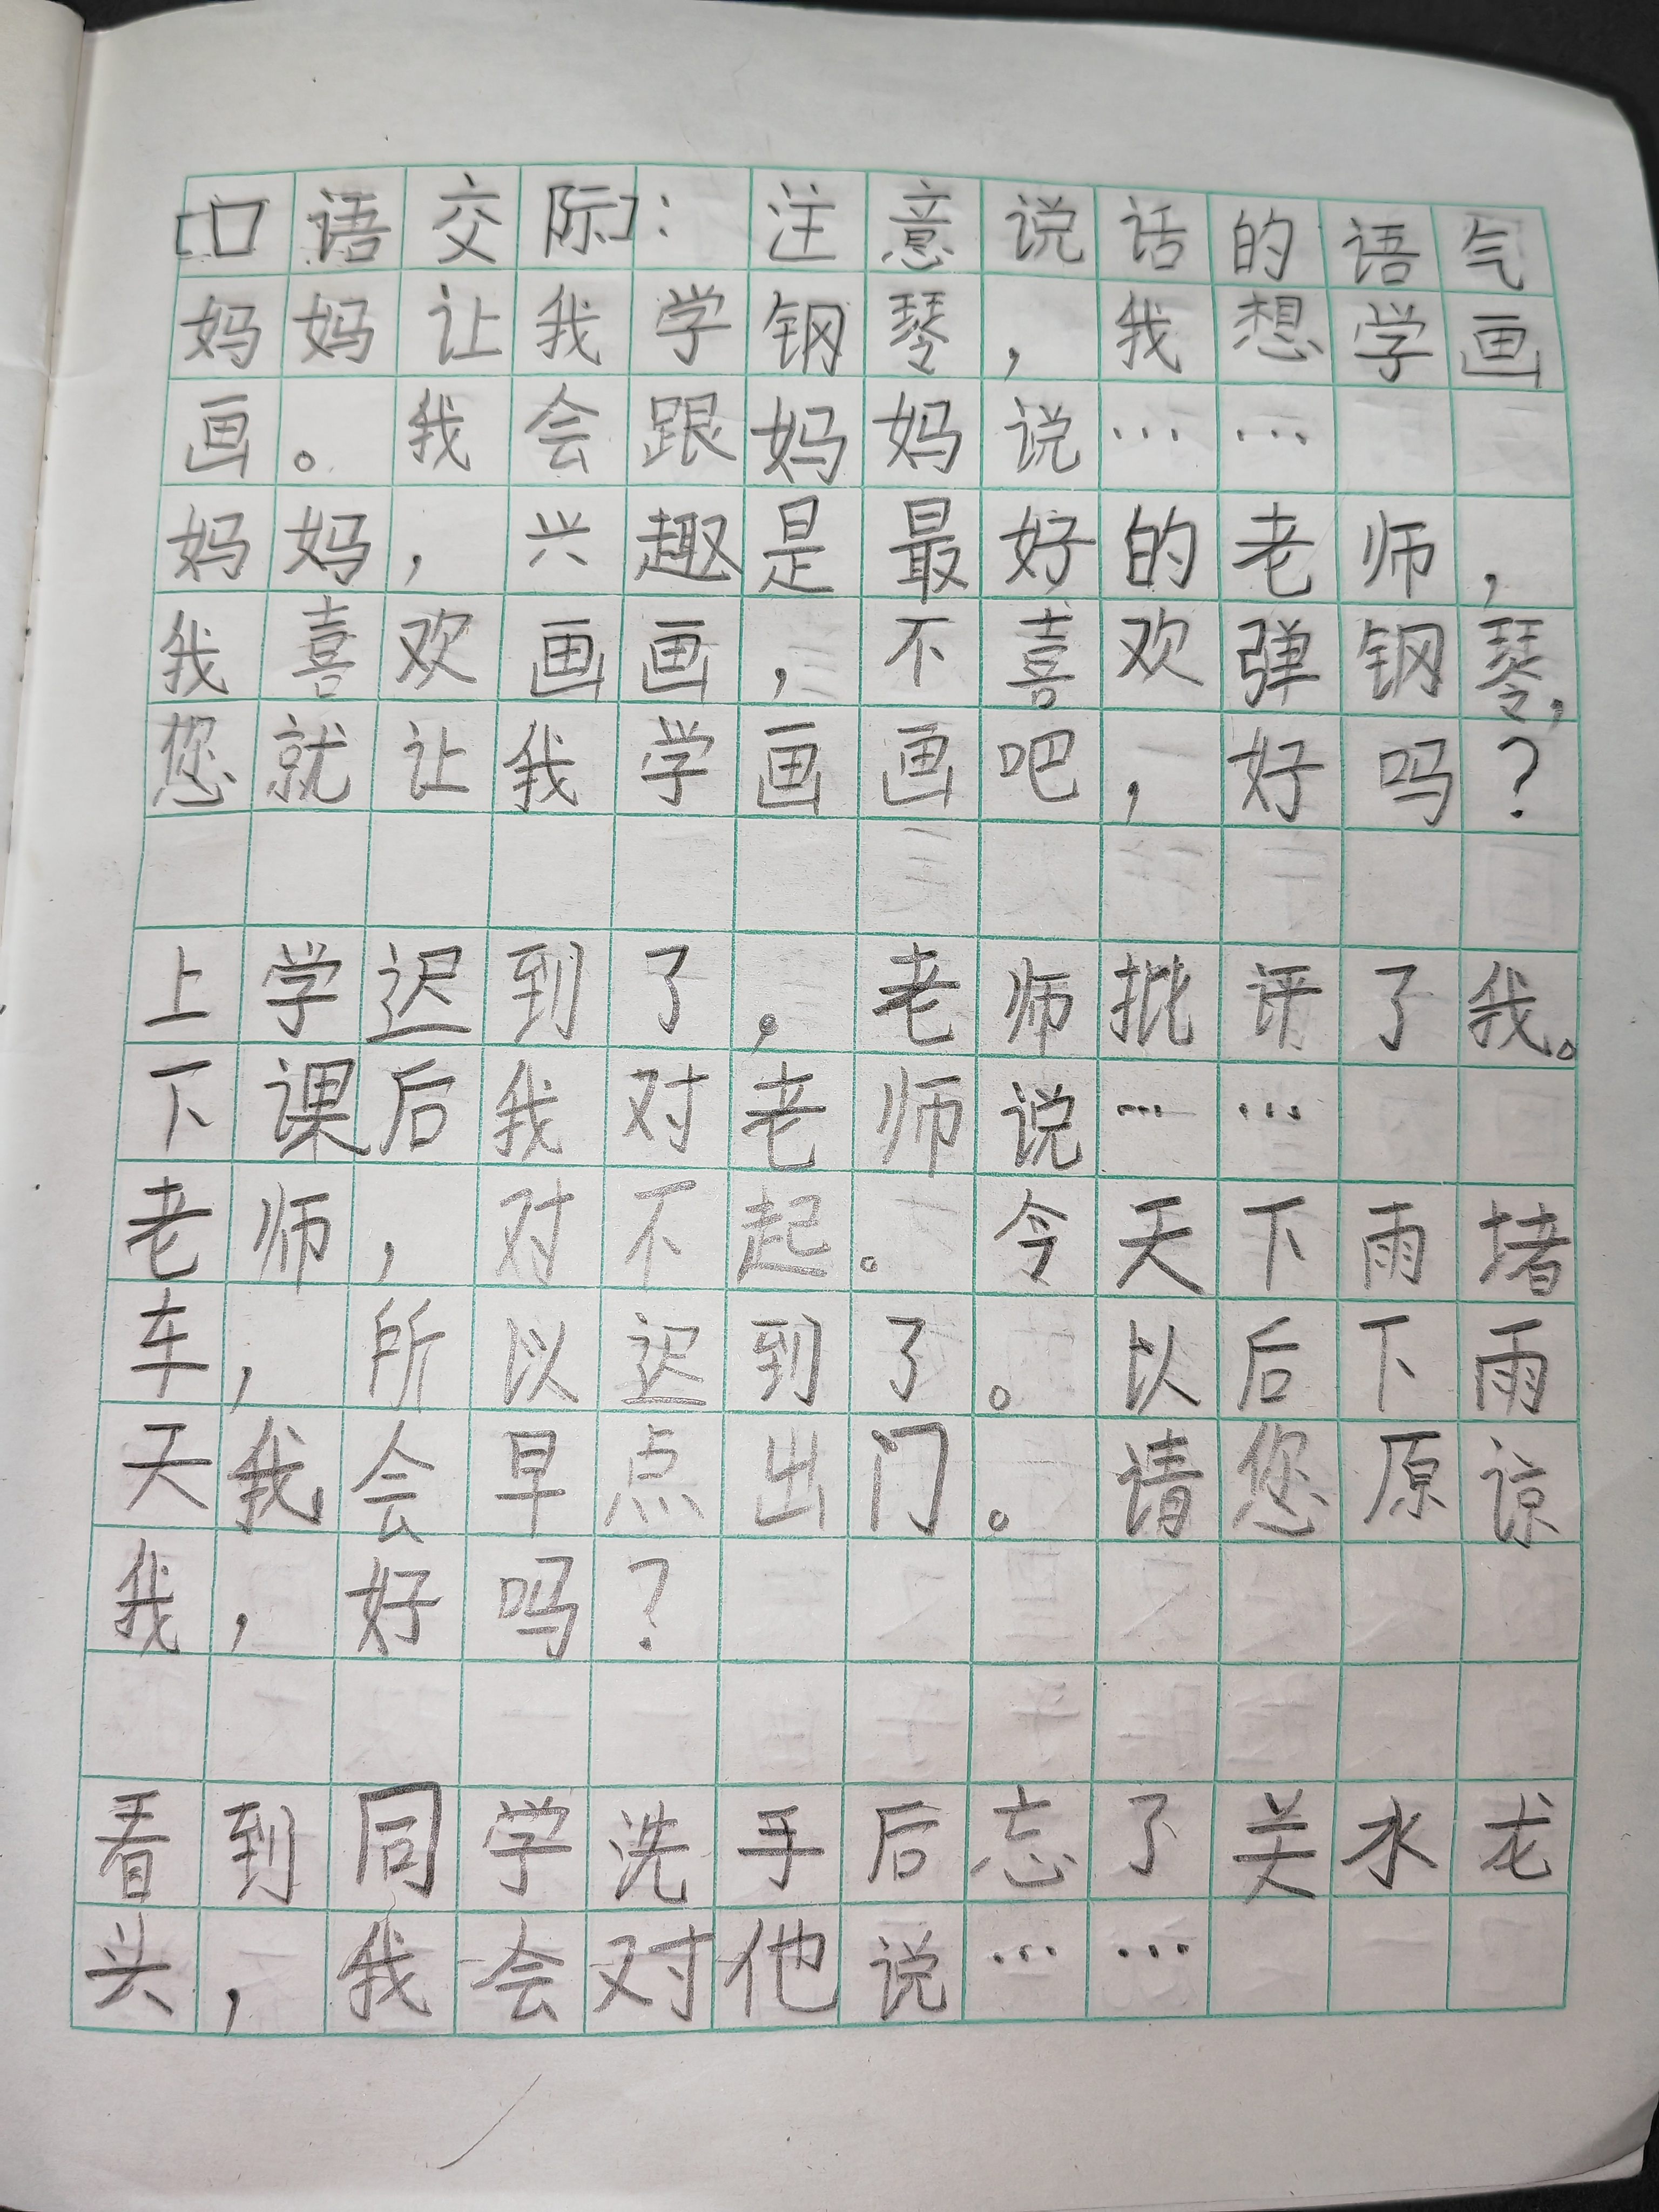 [口语交际]：注意说话的语气
妈妈让我学钢琴，我想学画
画。我会跟妈妈说……
妈妈，兴趣是最好的老师，
我喜欢画画，不喜欢弹钢琴，
您就让我学画画吧，好吗？
上学迟到了。老师批评了我。
下课后我对老师说……
老师，对不起。今天下雨堵
车，所以迟到了。以后下雨
天我会早点出门。请您原谅
我，好吗？
看到同学洗手后忘了关水龙
头，我会对他说……